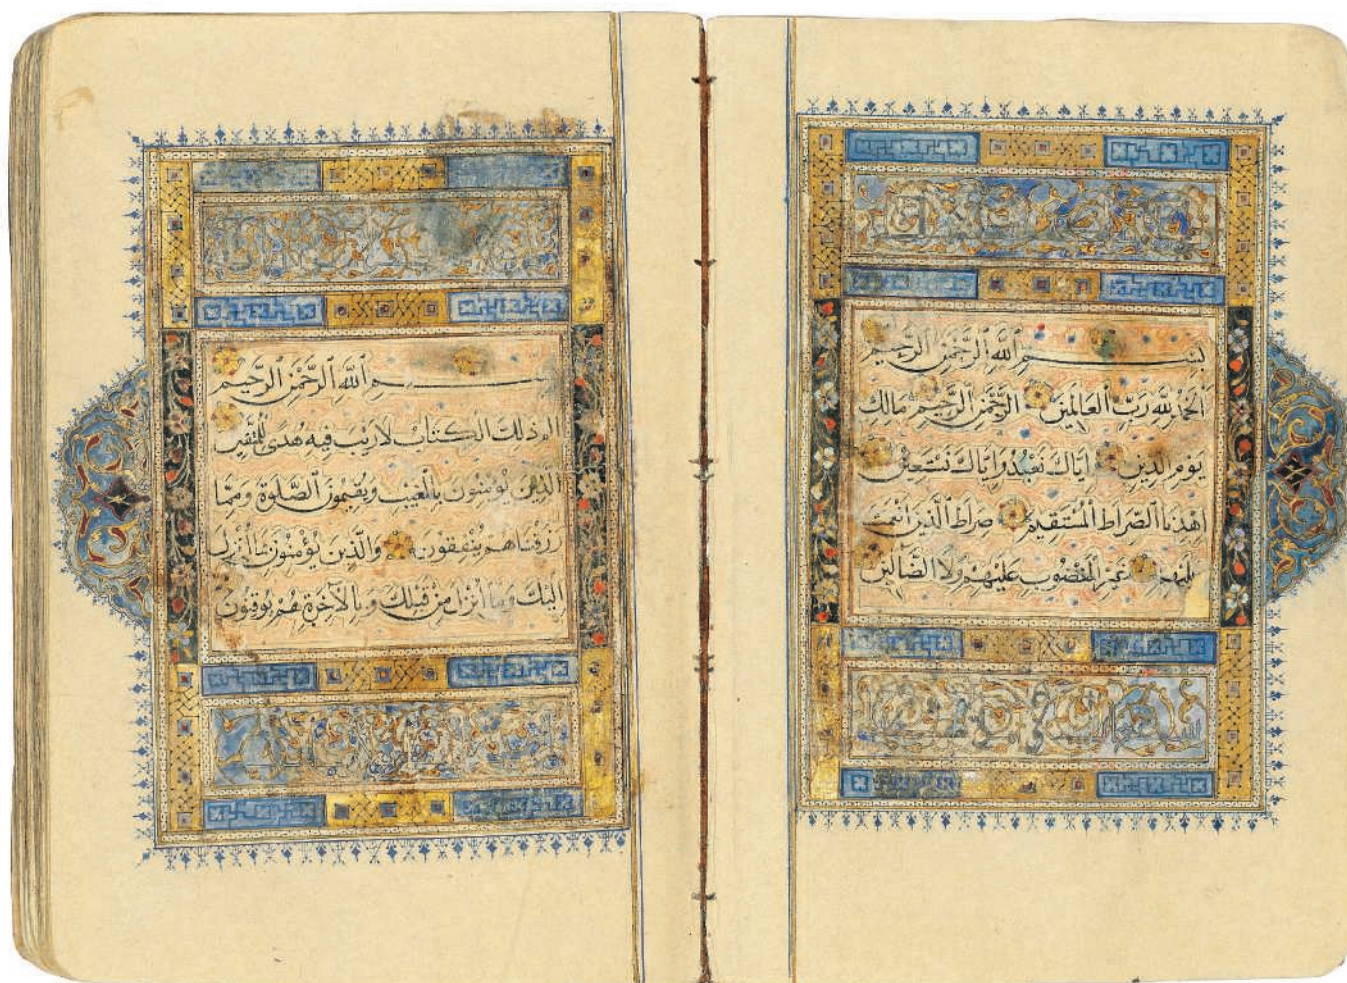 بسم الله الرحمن الرحيم
الحمد لله رب العالمين الرحمن الرحيم مالك
يوم الدين اياك نعبد واياك نستعين
اهدنا الصراط المستقيم صراط الذين انعمت
عليهم غير المغضوب عليهم ولا الضالين
بسم الله الرحمن الرحيم
الم ذلك الكتاب لا ريب فيه هدى للمتقين
الذين يؤمنون بالغيب ويقيمون الصلوة ومما
رزقناهم ينفقون والذين يؤمنون بما انزل
اليك وما انزل من قبلك وبالآخرة هم يوقنون